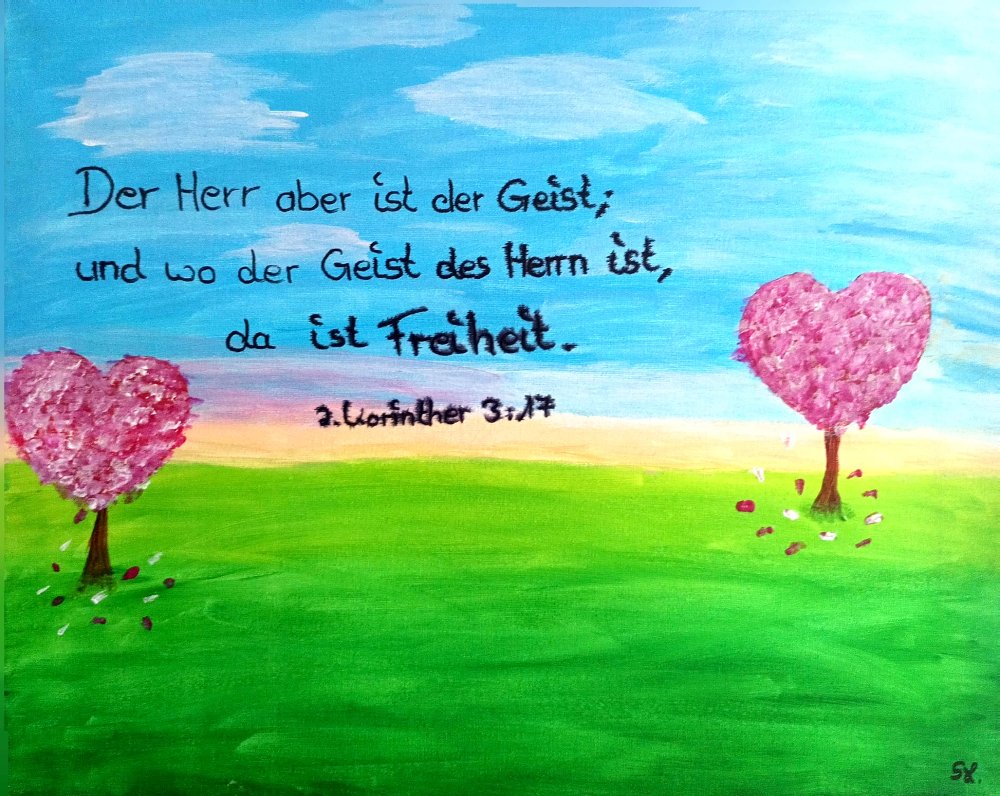 Der Herr aber ist der Geist;
und wo der Geist des Herrn ist,
da ist Freiheit.
2. Korinther 3:17